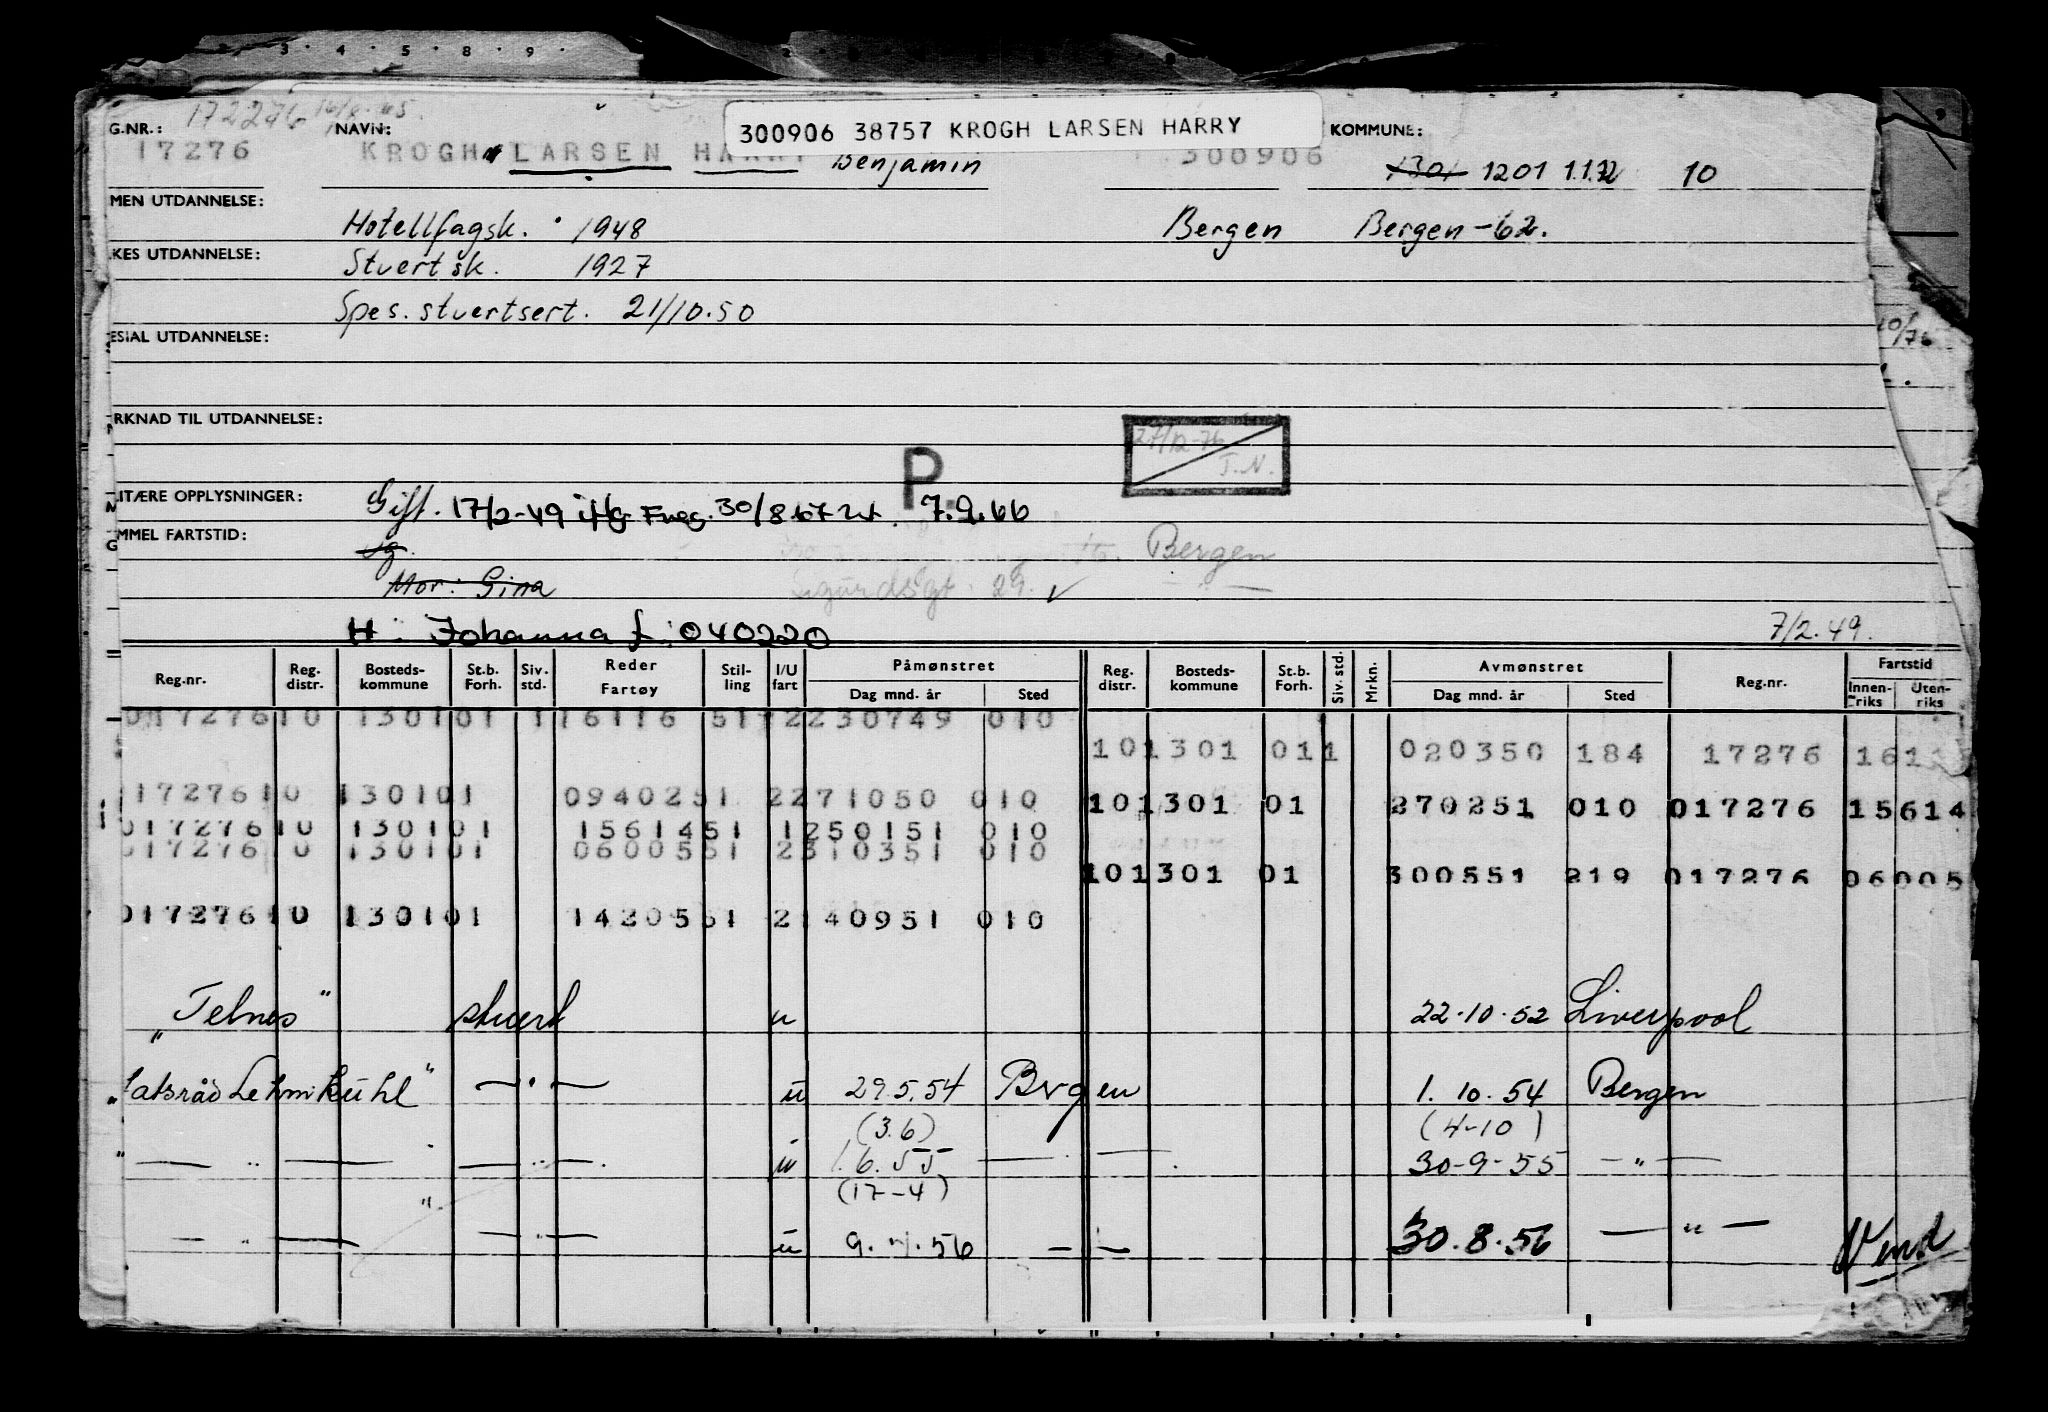 3 · 4 · 5 · 8 · 9 ·
172276 16/8-45.
300906 38757 KROGH LARSEN HARRY
G.NR.: NAVN: KOMMUNE:
17276 KROGH LARSEN HARRY Benjamin 300906 1301 1201 1.1.72 10
MEN UTDANNELSE:
Hotellfagsk. 1948 Bergen Bergen-62.
KES UTDANNELSE:
Stuertsk. 1927
Spes. stuertsert. 21/10.50
ESIAL UTDANNELSE:
RKNAD TIL UTDANNELSE:
27/12-76
T.N.
P.
ITÆRE OPPLYSNINGER:
Gift. 17/2-49 iflg Freg. 30/8 7.9.66
MMEL FARTSTID:
ug. Bergen
Mor: Gina Sigurdsgt. 29. ✓
H: Johanna f. 040220 7/2.49.
Reg.nr. Reg. distr. Bosteds-kommune St.b. Forh. Siv. std. Reder Fartøy Stil-ling I/U fart Påmønstret Dag mnd. år Sted Reg. distr. Bosteds-kommune St.b. Forh. Siv. std. Mrkn. Avmønstret Dag mnd. år Sted Reg.nr. Fartstid Innen-riks Uten-riks
01727610 130101 116116 511 2230749 010
101301 011 020350 184 17276 1611
1727610 130101 0940251 2271050 010
101301 01 270251 010 017276 15614
01727610 130101 1561451 1250151 010
01727610 130101 0600551 2310351 010
101301 01 300551 219 017276 06005
01727610 130101 1420551 2140951 010
"Telnes" stuert u 22.10.52 Liverpool
"Statsråd Lehmkuhl" — " — u 29.5.54 Bergen 1.10.54 Bergen
(3.6) (4-10)
" — " — — " — u 1.6.55 — " — 30-9-55 — " —
(17-4)
— " — — " — u 9.4.56 — " — 30.8.56 — " — Vend